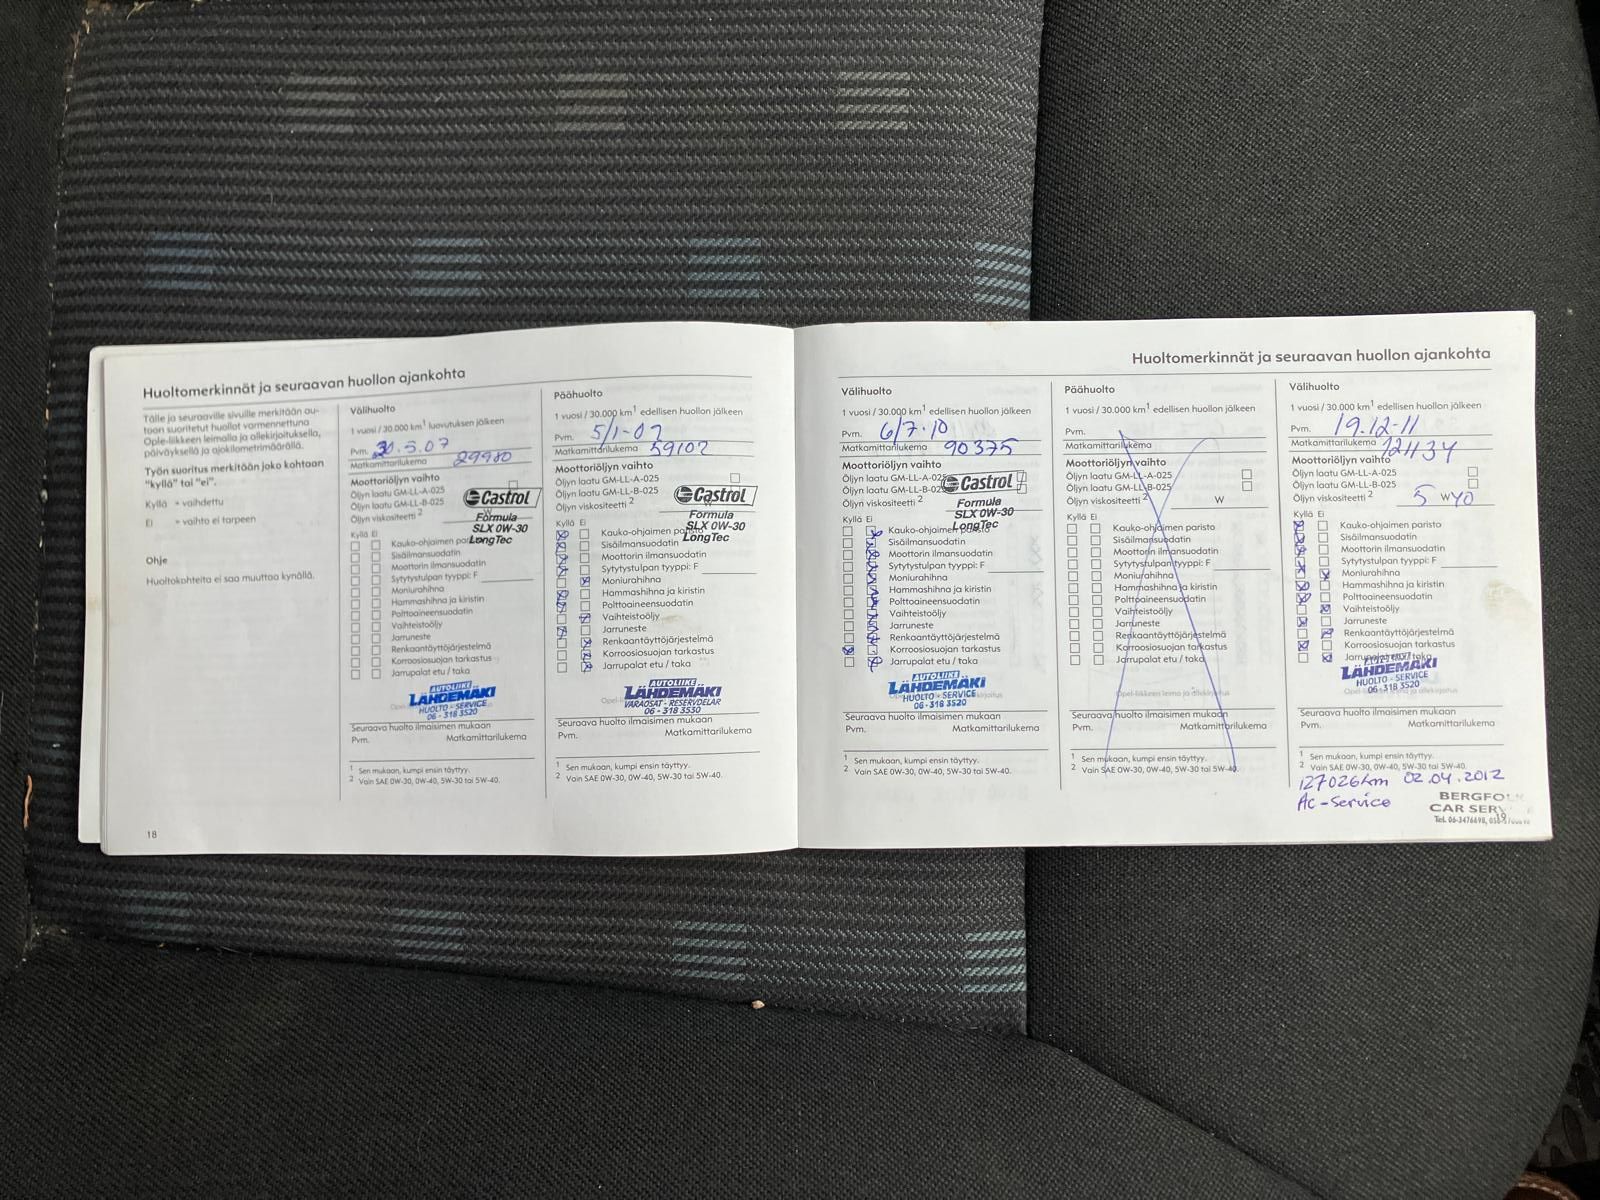 Huoltomerkinnät ja seuraavan huollon ajankohta
Tälle ja seuraaville sivuille merkitään au-
toon suoritetut huollot varmennettuna
Ople-liikkeen leimalla ja allekirjoituksella,
päiväyksellä ja ajokilometrimäärällä.
Työn suoritus merkitään joko kohtaan
"kyllä" tai "ei".
Kyllä = vaihdettu
Ei = vaihto ei tarpeen
Ohje
Huoltokohteita ei saa muuttaa kynällä.
18
Välihuolto
1 vuosi / 30.000 km1 luovutuksen jälkeen
Pvm. 30.5.07
Matkamittarilukema 29980
Moottoriöljyn vaihto
Öljyn laatu GM-LL-A-025
Öljyn laatu GM-LL-B-025
Öljyn viskositeetti 2 W
Castrol
Formula
SLX 0W-30
LongTec
Kyllä Ei
Kauko-ohjaimen
Sisäilmansuodatin
Moottorin ilmansuodatin
Sytytystulpan tyyppi: F
Moniurahihna
Hammashihna ja kiristin
Polttoaineensuodatin
Vaihteistoöljy
Jarruneste
Renkaantäyttöjärjestelmä
Korroosiosuojan tarkastus
Jarrupalat etu / taka
AUTOLIIKE
LÄHDEMÄKI
HUOLTO - SERVICE
06 - 318 3520
Seuraava huolto ilmaisimen mukaan
Pvm. Matkamittarilukema
1 Sen mukaan, kumpi ensin täyttyy.
2 Vain SAE 0W-30, 0W-40, 5W-30 tai 5W-40.
Päähuolto
1 vuosi / 30.000 km1 edellisen huollon jälkeen
Pvm. 5/1-09
Matkamittarilukema 59102
Moottoriöljyn vaihto
Öljyn laatu GM-LL-A-025
Öljyn laatu GM-LL-B-025
Öljyn viskositeetti 2
Castrol
Formula
SLX 0W-30
LongTec
Kyllä Ei
Kauko-ohjaimen paristo
Sisäilmansuodatin
Moottorin ilmansuodatin
Sytytystulpan tyyppi: F
Moniurahihna
Hammashihna ja kiristin
Polttoaineensuodatin
Vaihteistoöljy
Jarruneste
Renkaantäyttöjärjestelmä
Korroosiosuojan tarkastus
Jarrupalat etu / taka
AUTOLIIKE
LÄHDEMÄKI
VARAOSAT - RESERVDELAR
06 - 318 3530
Seuraava huolto ilmaisimen mukaan
Pvm. Matkamittarilukema
1 Sen mukaan, kumpi ensin täyttyy.
2 Vain SAE 0W-30, 0W-40, 5W-30 tai 5W-40.
Huoltomerkinnät ja seuraavan huollon ajankohta
Välihuolto
1 vuosi / 30.000 km1 edellisen huollon jälkeen
Pvm. 6/7.10
Matkamittarilukema 90375
Moottoriöljyn vaihto
Öljyn laatu GM-LL-A-025
Öljyn laatu GM-LL-B-025
Öljyn viskositeetti 2
Castrol
Formula
SLX 0W-30
LongTec
Kyllä Ei
Kauko-ohjaimen
Sisäilmansuodatin
Moottorin ilmansuodatin
Sytytystulpan tyyppi: F
Moniurahihna
Hammashihna ja kiristin
Polttoaineensuodatin
Vaihteistoöljy
Jarruneste
Renkaantäyttöjärjestelmä
Korroosiosuojan tarkastus
Jarrupalat etu / taka
AUTOLIIKE
LÄHDEMÄKI
HUOLTO - SERVICE
06 - 318 3520
Seuraava huolto ilmaisimen mukaan
Pvm. Matkamittarilukema
1 Sen mukaan, kumpi ensin täyttyy.
2 Vain SAE 0W-30, 0W-40, 5W-30 tai 5W-40.
Päähuolto
1 vuosi / 30.000 km1 edellisen huollon jälkeen
Pvm.
Matkamittarilukema
Moottoriöljyn vaihto
Öljyn laatu GM-LL-A-025
Öljyn laatu GM-LL-B-025
Öljyn viskositeetti 2 W
Kyllä Ei
Kauko-ohjaimen paristo
Sisäilmansuodatin
Moottorin ilmansuodatin
Sytytystulpan tyyppi: F
Moniurahihna
Hammashihna ja kiristin
Polttoaineensuodatin
Vaihteistoöljy
Jarruneste
Renkaantäyttöjärjestelmä
Korroosiosuojan tarkastus
Jarrupalat etu / taka
Opel-liikkeen leima ja allekirjoitus
Seuraava huolto ilmaisimen mukaan
Pvm. Matkamittarilukema
1 Sen mukaan, kumpi ensin täyttyy.
2 Vain SAE 0W-30, 0W-40, 5W-30 tai 5W-40.
Välihuolto
1 vuosi / 30.000 km1 edellisen huollon jälkeen
Pvm. 19.12-11
Matkamittarilukema 121134
Moottoriöljyn vaihto
Öljyn laatu GM-LL-A-025
Öljyn laatu GM-LL-B-025
Öljyn viskositeetti 2 5 W 40
Kyllä Ei
Kauko-ohjaimen paristo
Sisäilmansuodatin
Moottorin ilmansuodatin
Sytytystulpan tyyppi: F
Moniurahihna
Hammashihna ja kiristin
Polttoaineensuodatin
Vaihteistoöljy
Jarruneste
Renkaantäyttöjärjestelmä
Korroosiosuojan tarkastus
Jarrupalat etu / taka
LÄHDEMÄKI
HUOLTO - SERVICE
06 - 318 3520
Seuraava huolto ilmaisimen mukaan
Pvm. Matkamittarilukema
1 Sen mukaan, kumpi ensin täyttyy.
2 Vain SAE 0W-30, 0W-40, 5W-30 tai 5W-40.
127026km 02.04.2012
Ac-Service
CAR
Tel. 06-3476698,
19